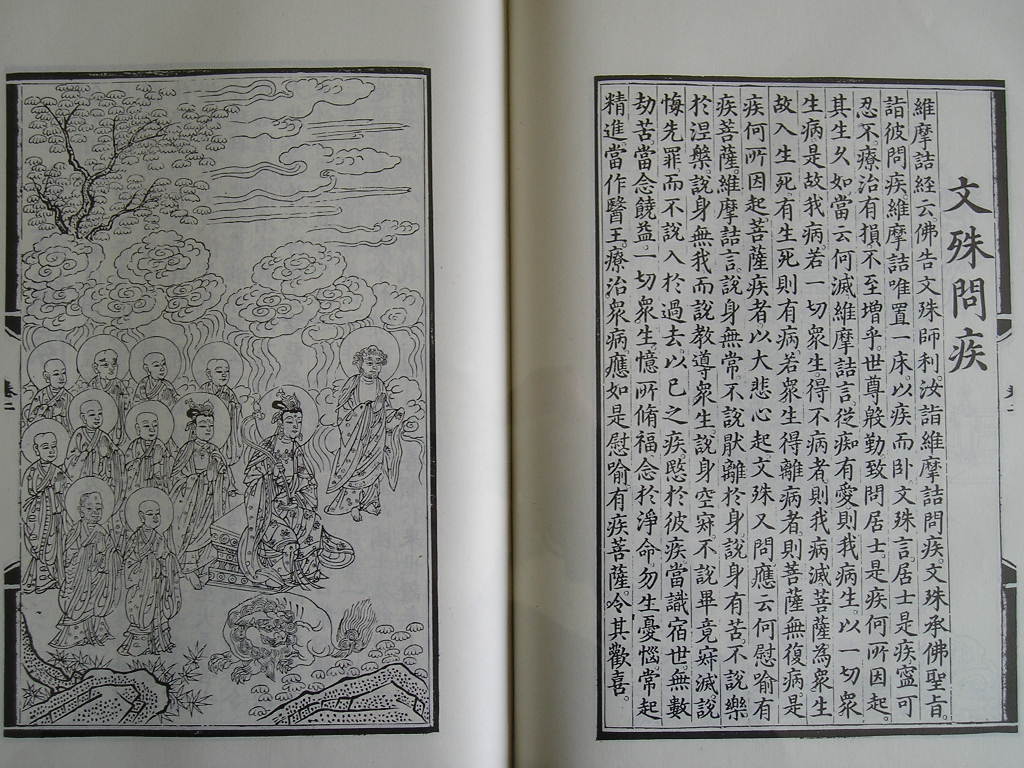 文殊問疾
維摩詰経云佛告文殊師利汝詣維摩詰問疾。文殊承佛聖旨。
詣彼問疾維摩詰唯置一床。以疾而卧文殊言。居士是疾寧可
忍不。療治有損不至增乎世尊殷勤致問居士是疾何所因起。
其生久如。當云何滅維摩詰言。從痴有愛則我病生。以一切衆
生病是故我病若一切衆生得不病者。則我病滅菩薩為衆生
故入生死有生死則有病。若衆生得離病者。則菩薩無復病。是
疾何所因起菩薩疾者以大悲心起文殊又問。應云何慰喻有
疾菩薩。維摩詰言。說身無常不說猒離於身。說身有苦。不說樂
於涅槃。說身無我而說教導衆生說身空寂。不說畢竟寂滅說
悔先罪。而不說入於過去。以己之疾愍於彼疾當識宿世無數
劫苦。當念饒益。一切衆生憶所脩福念於淨命勿生憂惱常起
精進。當作醫王。療治衆病應如是慰喻有疾菩薩。令其歡喜。
卷二